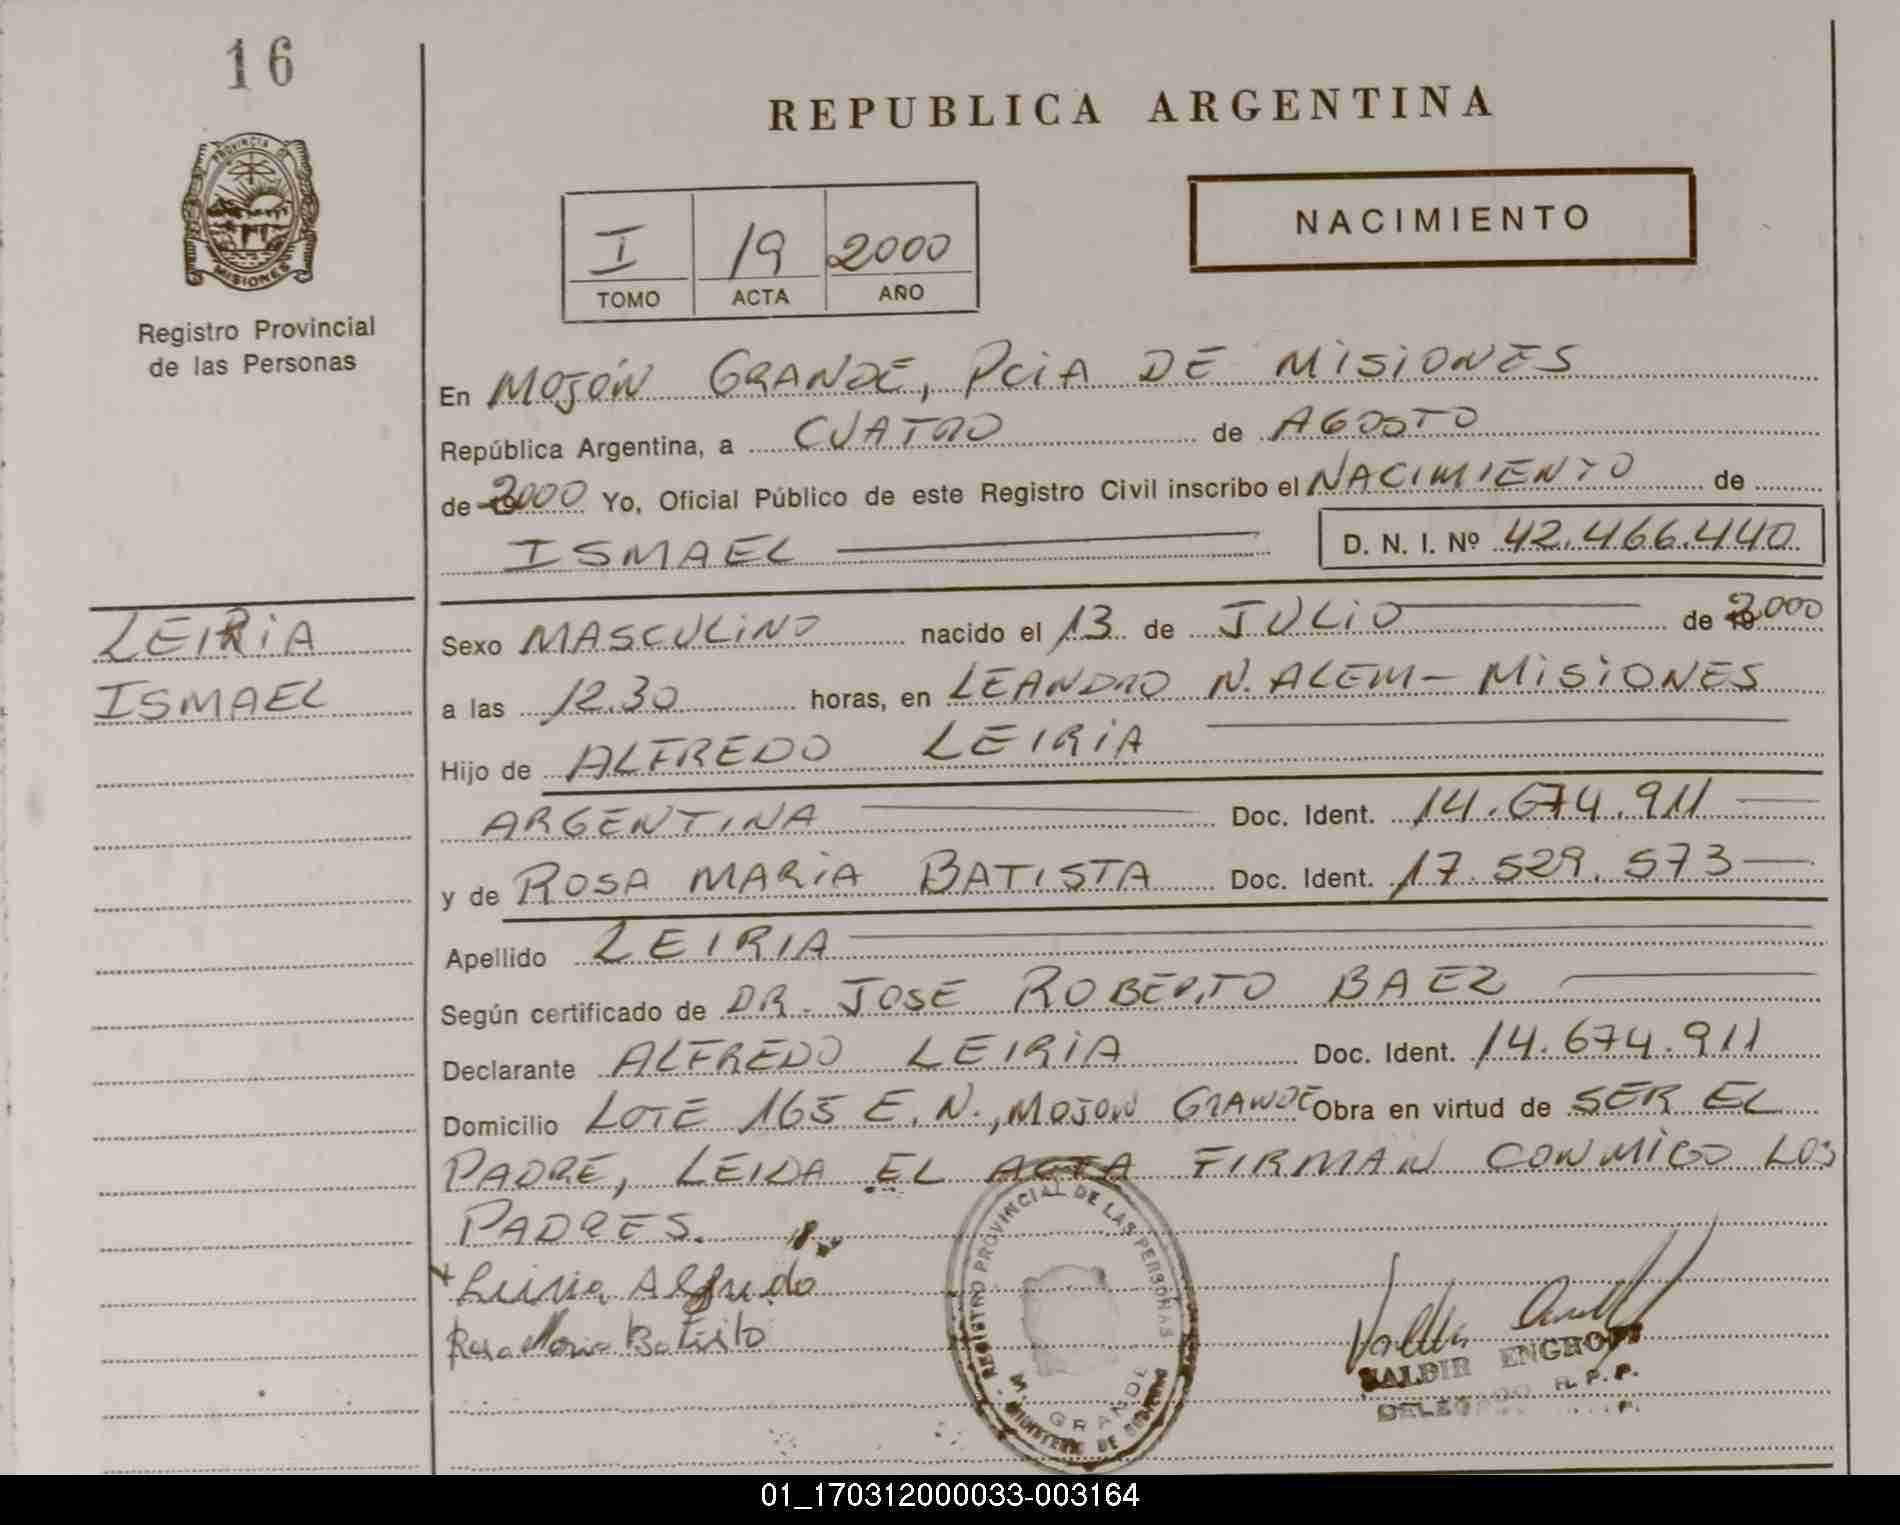 16
REPUBLICA ARGENTINA
PROVINCIA DE
MISIONES
Registro Provincial
de las Personas
I 19 2000
TOMO ACTA AÑO
NACIMIENTO
En MOJÓN GRANDE, PCIA DE MISIONES
República Argentina, a CUATRO de AGOSTO
de 2000 Yo, Oficial Público de este Registro Civil inscribo el NACIMIENTO de
ISMAEL D. N. I. Nº 42.466.440
LEIRIA
ISMAEL
Sexo MASCULINO nacido el 13 de JULIO de 2000
a las 12.30 horas, en LEANDRO N. ALEM - MISIONES
Hijo de ALFREDO LEIRIA
ARGENTINA Doc. Ident. 14.674.911
y de ROSA MARIA BATISTA Doc. Ident. 17.529.573
Apellido LEIRIA
Según certificado de DR. JOSE ROBERTO BAEZ
Declarante ALFREDO LEIRIA Doc. Ident. 14.674.911
Domicilio LOTE 165 E.N., MOJON GRANDE Obra en virtud de SER EL
PADRE, LEIDA EL ACTA FIRMAN CONMIGO LOS
PADRES.
Leiria Alfredo
Rosa Maria Batista
REGISTRO PROVINCIAL DE LAS PERSONAS
M. GRANDE
MINISTERIO DE GOBIERNO
VALBIR ENGROFF
DELEGADO R. P. P.
01_170312000033-003164